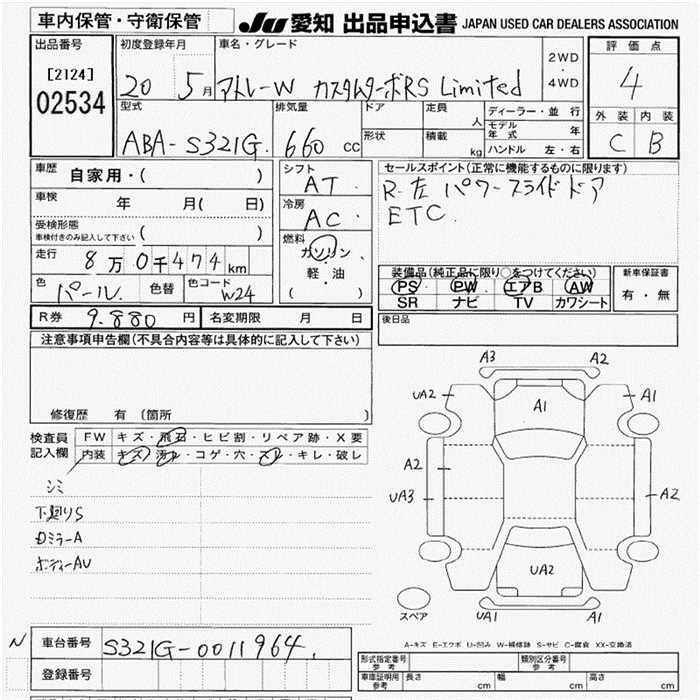 車内保管・守衛保管 JU 愛知 出品申込書 JAPAN USED CAR DEALERS ASSOCIATION
出品番号
[2124]
02534
初度登録年月
20 5月
車名・グレード
アトレーW カスタムターボRS Limited
2WD
・
4WD
評価点
4
外装 内装
C B
型式
ABA-S321G.
排気量
660 cc
ドア
形状
定員
人
積載
kg
ディーラー・並行
モデル年式 年
ハンドル 左・右
車歴 自家用・( )
車検 年 月( 日)
受検形態
車検付きのみ記入して下さい ( )
走行 8万0千474km
色 パール. 色替 色コード W24
シフト
AT
冷房
AC
燃料
ガソリン
・
軽・油
( )
セールスポイント(正常に機能するものに限ります)
R-左 パワースライドドア
ETC
装備品(純正品に限り○をつけてください)
PS PW エアB AW
SR ナビ TV カワシート
新車保証書
有・無
後日品
R券 9.880 円 名変期限 月 日
注意事項申告欄(不具合内容等は具体的に記入して下さい)
修復歴 有〔箇所 〕
検査員記入欄
FW キズ・飛石・ヒビ割・リペア跡・X要
内装 キズ・汚れ・コゲ・穴・スレ・キレ・破レ
シミ
下廻りS
Dミラー A
ボディーAU
A3 A2
UA2 A1 A1
A2
UA3 A2
UA2
スペア UA1 A1
A-キズ E-エクボ U-凹み W-補修跡 S-サビ C-腐食 XX-交換済
N 車台番号 S321G-0011964.
登録番号
形式指定番号
参考
類別区分番号
参考
車庫証明用
参考
長さ cm 幅 cm 高さ cm